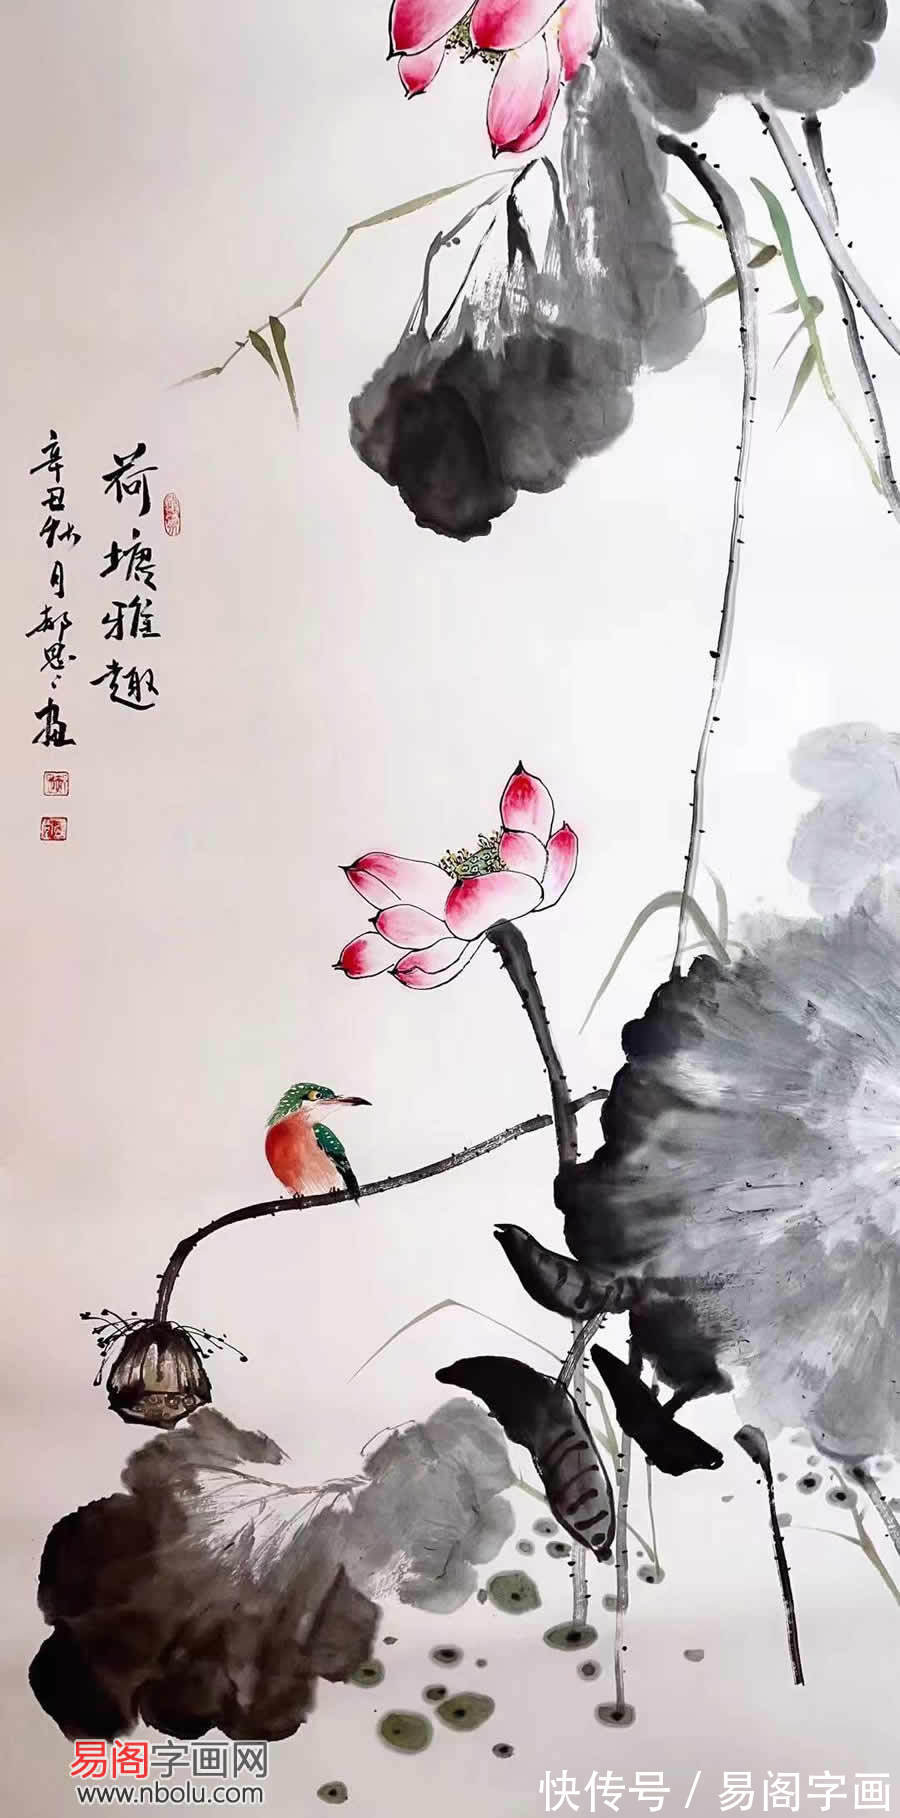 荷塘雅趣
辛丑秋月郝思思画
易阁字画网
www.nbolu.com
快传号 / 易阁字画